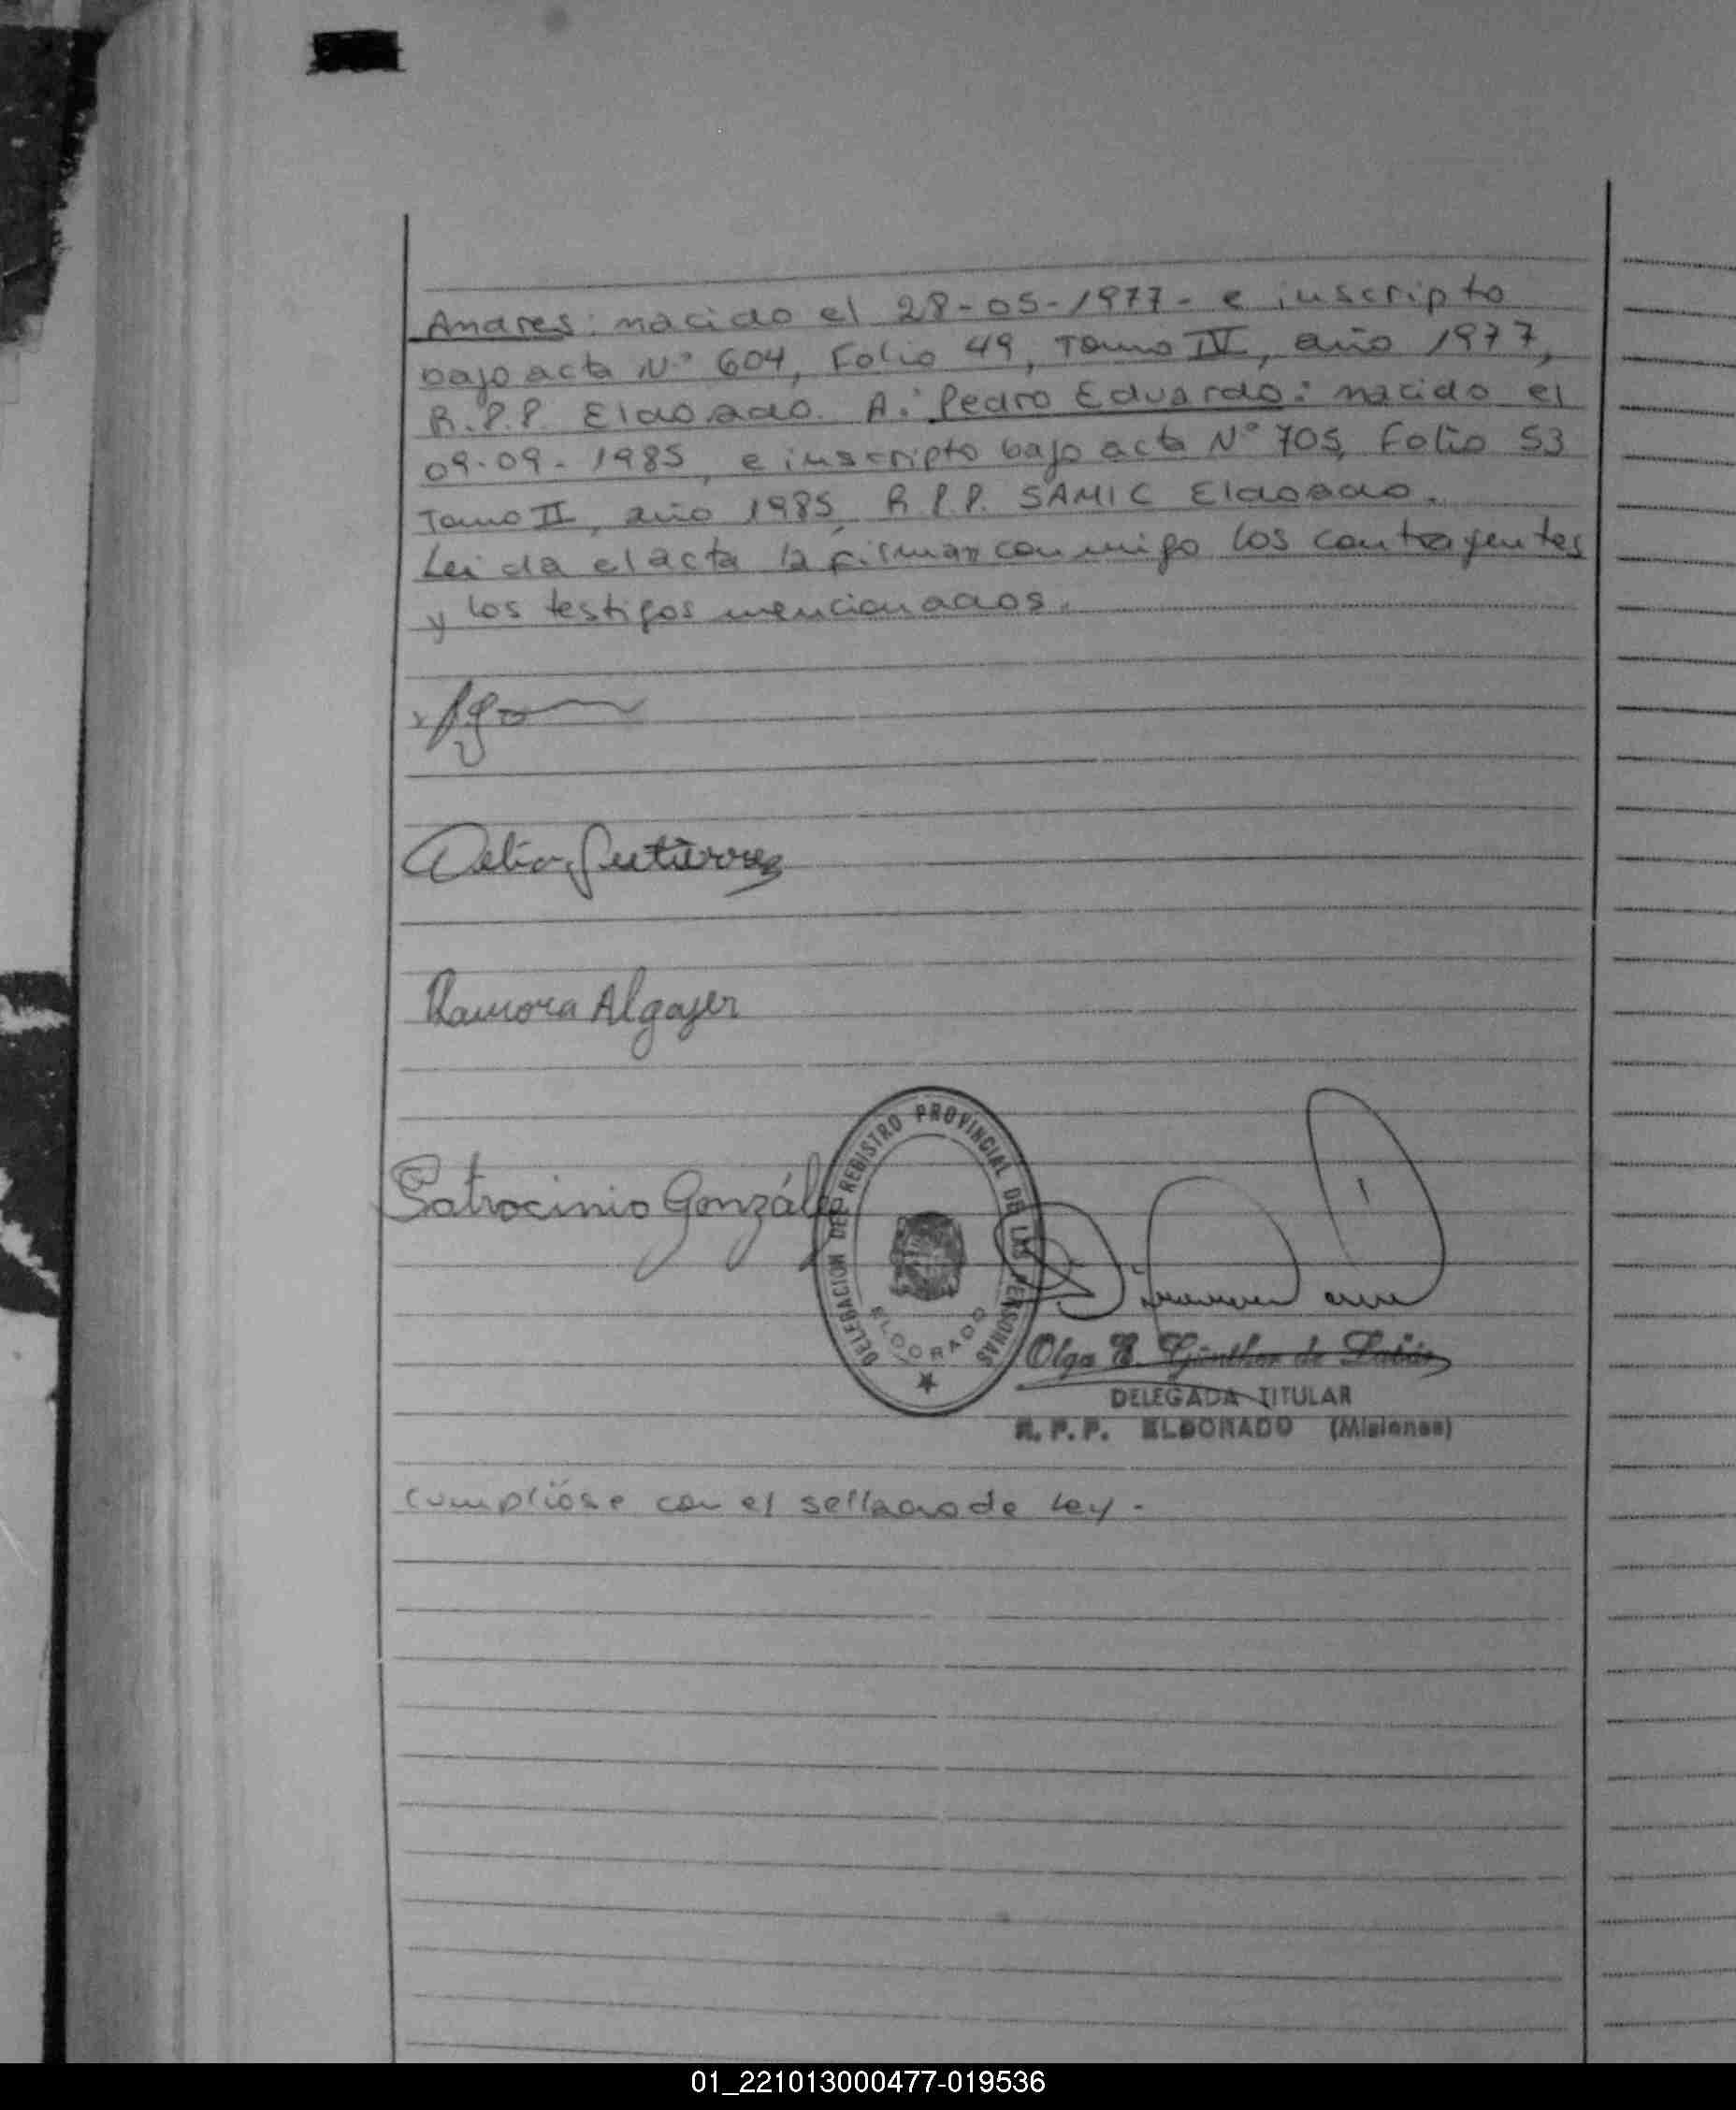 Andres: nacido el 28-05-1977- e inscripto
bajo acta N° 604, Folio 49, Tomo IV, año 1977,
R.P.P. Eldorado. A: Pedro Eduardo: nacido el
09-09-1985, e inscripto bajo acta N° 705, Folio 53
Tomo II, año 1985, R.P.P. SAMIC Eldorado.
Leida el acta la firman conmigo los contrayentes
y los testigos mencionados.
Delia Gutierrez
Ramona Algayer
Patrocinio González
DELEGACION DEL REGISTRO PROVINCIAL DE LAS PERSONAS
ELDORADO
Olga E. Günther de
DELEGADA TITULAR
R.P.P. ELDORADO (Misiones)
Cumplióse con el sellado de Ley.-
01_221013000477-019536